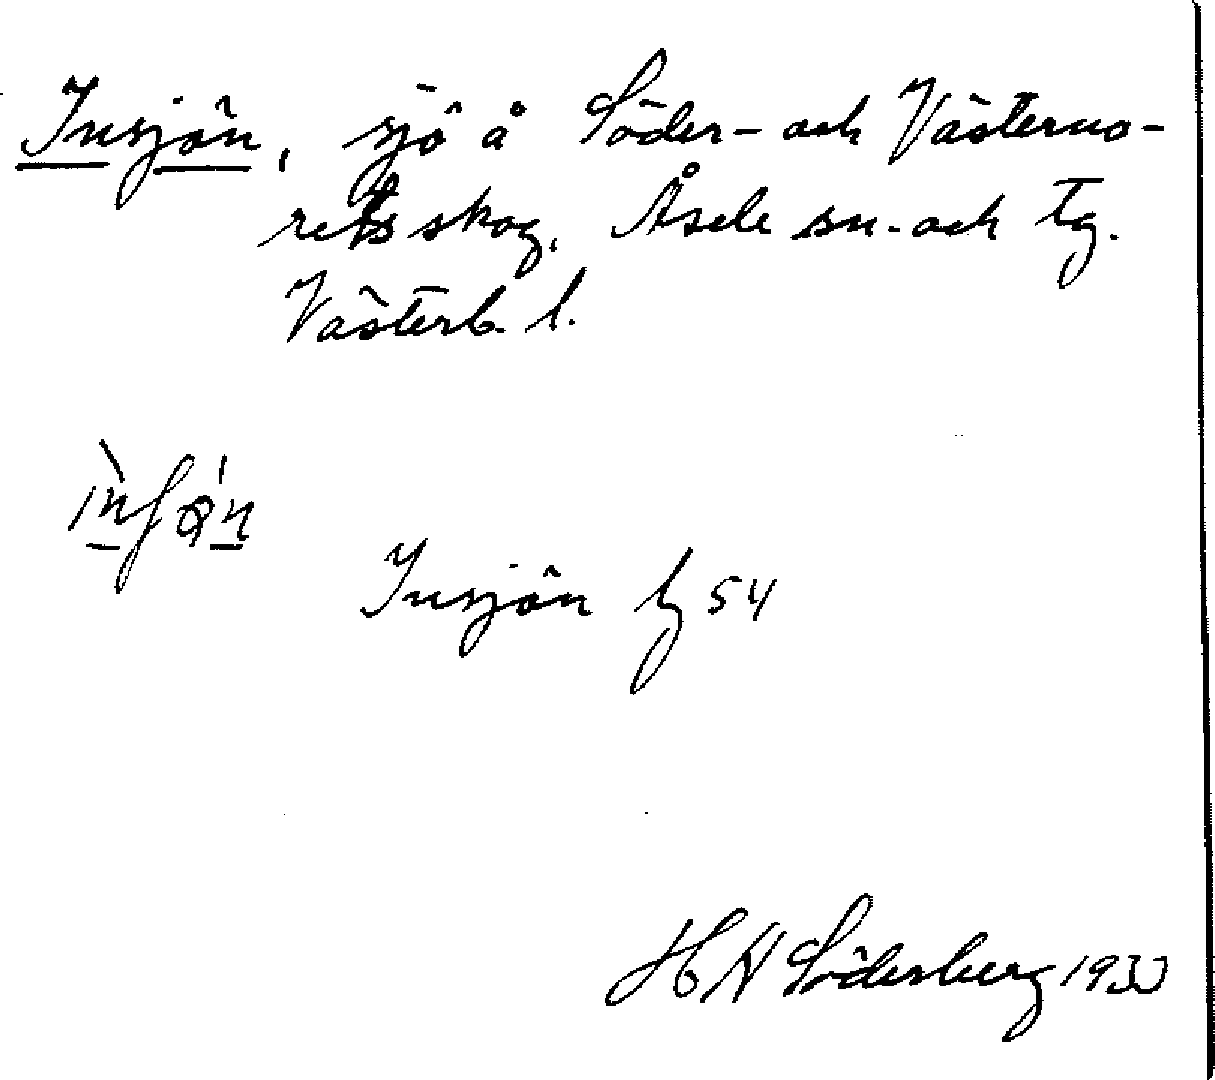 Insjön, sjö å Söder- och Västerno-
rets skog, Åsele sn. och tg.
Västerb. l.
Insjön 54
H N Söderberg 1930